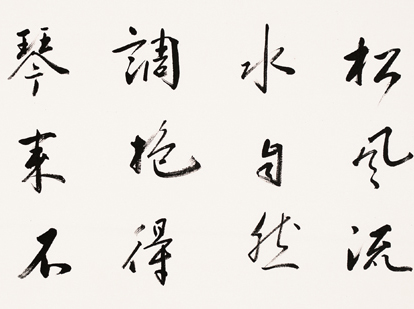 松风流
水自然
調抱得
琴来不